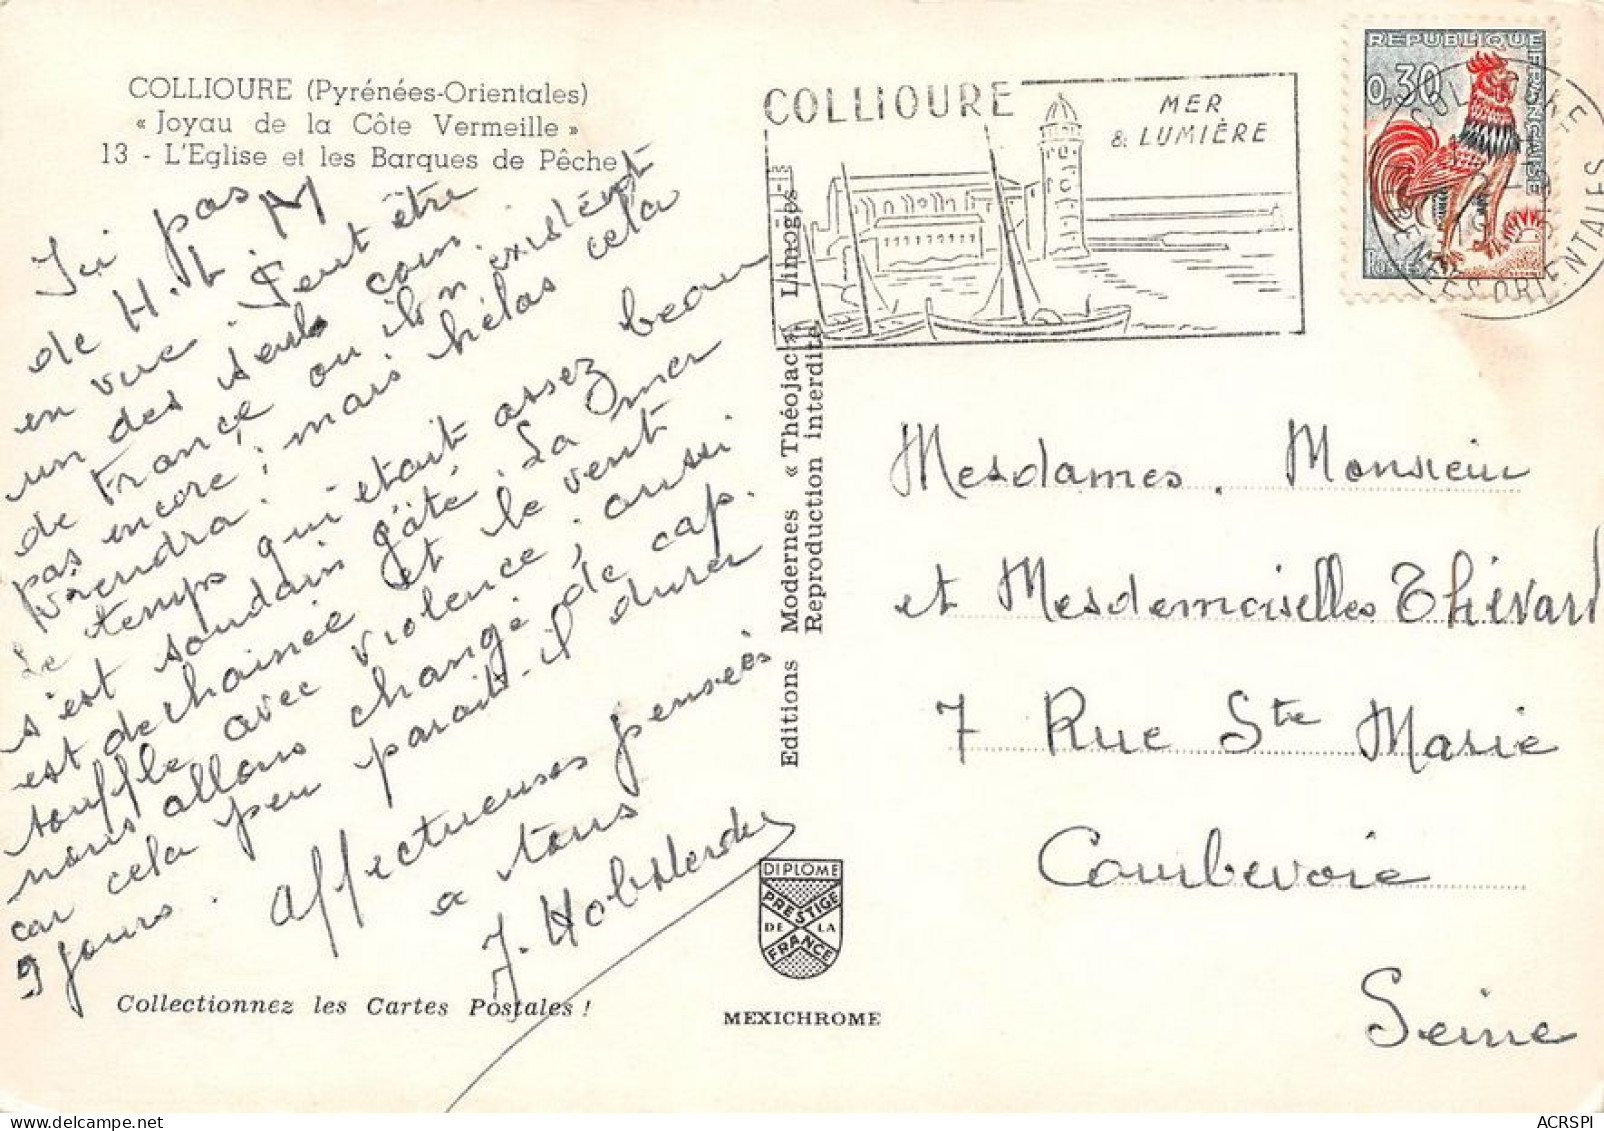 COLLIOURE (Pyrénées-Orientales)
« Joyau de la Côte Vermeille »
13 - L'Eglise et les Barques de Pêche
Ici pas
de H.L.M
en vue. Peut être
un des seuls coins
de France ou ils n'existent
pas encore ; mais hélas cela
viendra.
Le temps qui était assez beau
s'est soudain gâté. La mer
est dechainée et le vent
souffle avec violence ; aussi
nous allons changé de cap.
car cela peu parait-il durer
9 jours.
Affectueuses pensées
a tous
J.
Collectionnez les Cartes Postales !
Editions Modernes « Théojac » Limoges
Reproduction interdite
DIPLOME
PRESTIGE
DE LA
FRANCE
MEXICHROME
COLLIOURE
MER
& LUMIÈRE
REPUBLIQUE FRANÇAISE
0,30
POSTES
COLLIOURE
PYRENEES ORIENTALES
Mesdames. Monsieur
et Mesdemoiselles Thévard
7 Rue Ste Marie
Courbevoie
Seine
ACRSPI